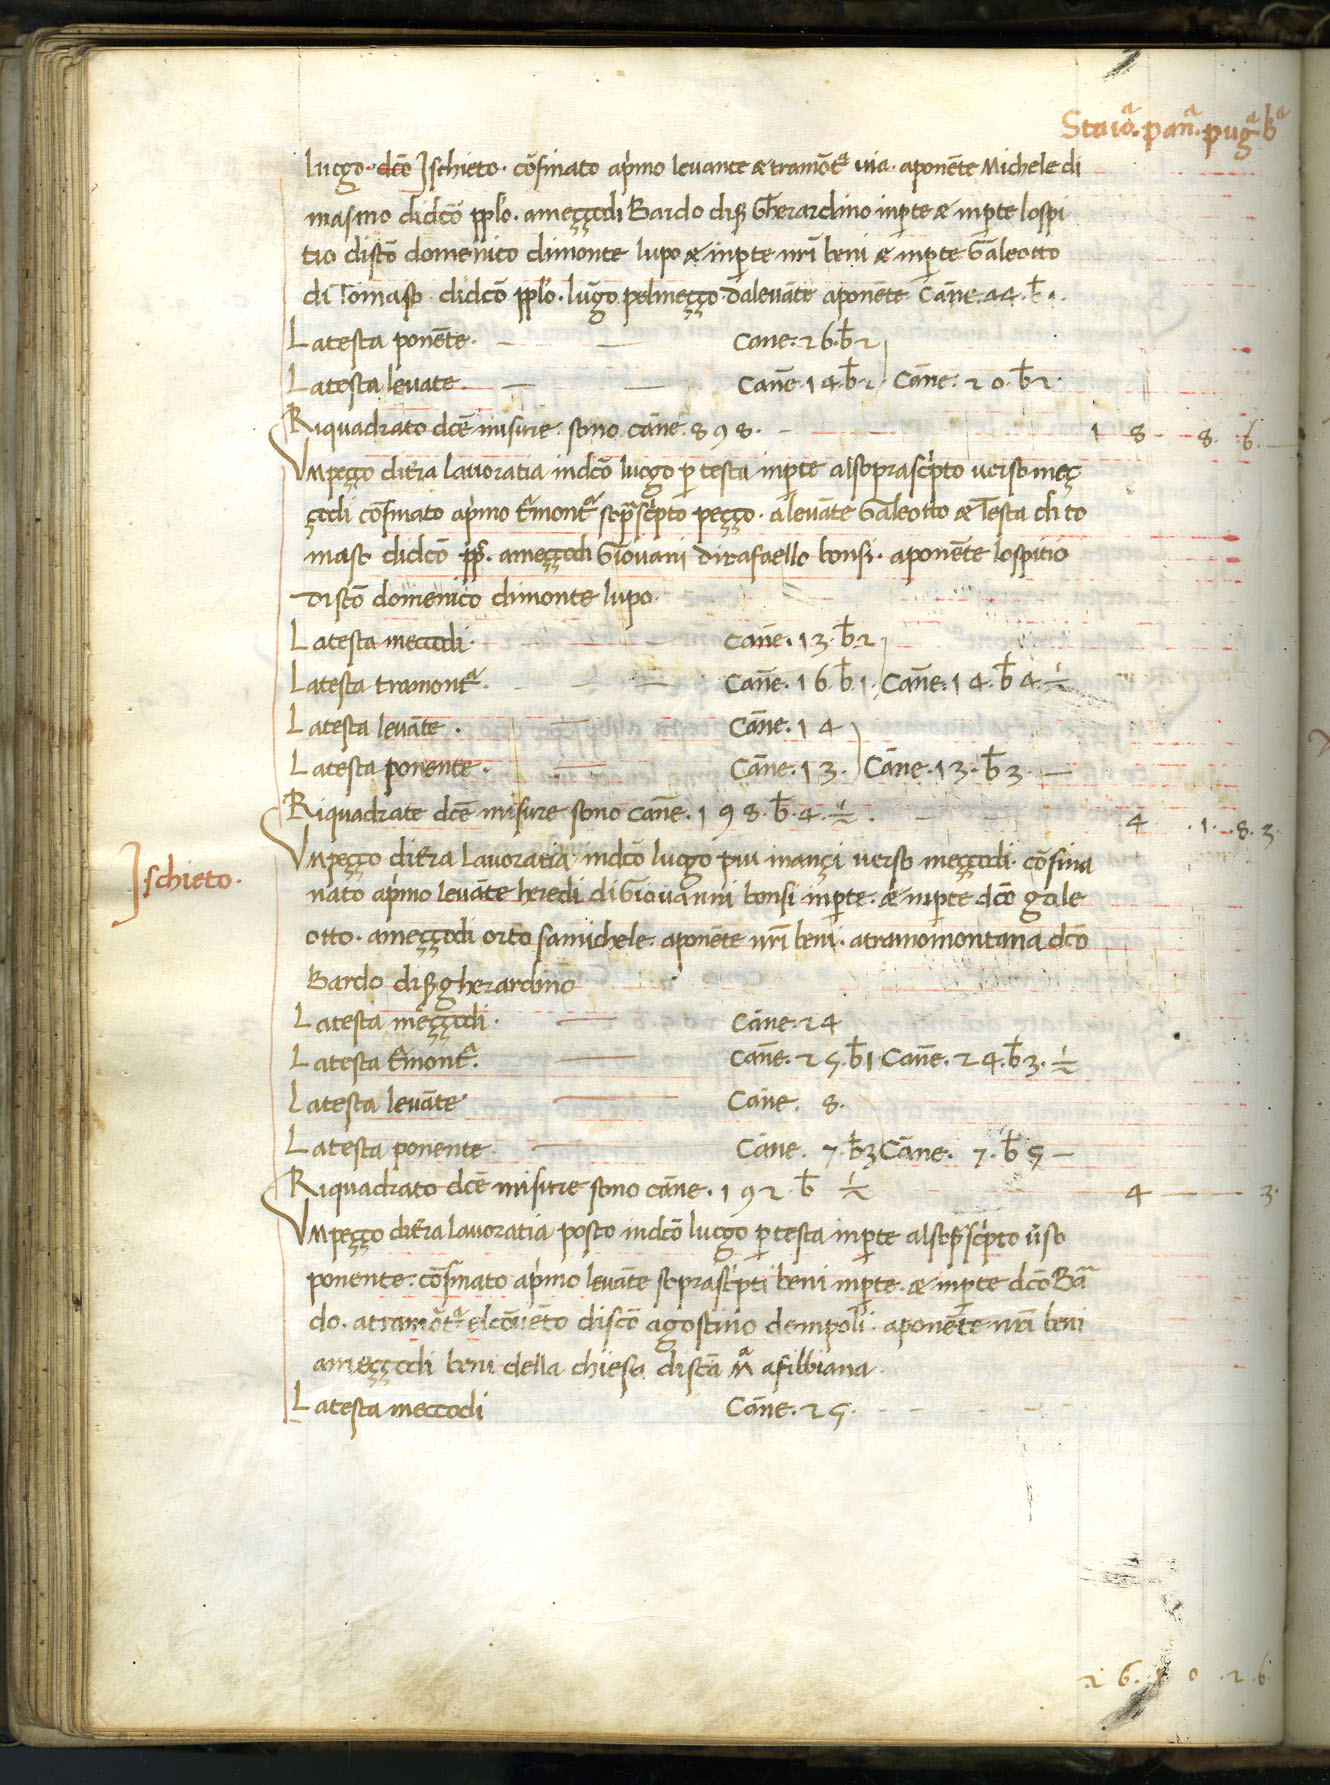 Staioᵃ. panᵃ. pugᵃ bᵃ
luogo. dcō Ischieto. cōfinato apͥmo levante & tramōtᵃ via. aponēte Michele di
masino didcō pplo. ameçço di Bardo diß Gherardino inpte & inpte lospi
tio discō domenico dimonte lupo & inpte nr̄i beni & inpte Galeotto
di Tomaso. didcō pplo. lūgo pelmeçço dalevāte aponēte Cāne. 44. b̄ 1.
Latesta ponēte. Cane. 26. b̄ 2
Latesta levāte. Canē. 14. b̄ 2 Cāne. 20. b̄ 2.
Riquadrato dcē misure. sono cāne. 898. 1 8 8. 6.
Vnpeçço ditr̄a lavoratia indcō luogo p testa inpte alsoprascͥpto verso meç
çodi cōfinato apͥmo tͣmontᵃ sopͣscͥpto peçço. alevāte Galeotto & Testa di to
maso didcō pp̄. ameççodi Giovāni di rafaello bonsi. aponēte lospitio
discō domenico dimonte lupo.
Latesta meççodi. Canē. 13. b̄ 2
Latesta tramontᵃ. Canē. 16. b̄. 1. Canē. 14. b̄ 4. ½
Latesta levāte. Cāne. 14
Latesta ponente. Cāne. 13. Cāne. 13. b̄ 3.
Riquadrate dcē misure sono Cāne. 198. b̄. 4. ½. 4 .1. .8. 3.
Vnpeçço ditr̄a lavoratia indcō luogo piu inançi verso meççodi. cōfina
Ischieto.
nato apͥmo levāte heredi di Giovanni bonsi inpte. & inpte dcō gale
otto. ameççodi orto samichele. aponēte nr̄i beni. atramomontana dcō
Bardo diß gherardino
Latesta meççodi. Cāne. 24
Latesta tͣmontᵃ. Canē. 25. b̄ 1 Canē. 24. b̄ 3. ½
Latesta levāte Cāne. 8.
Latesta ponente. Cāne. 7. b̄ 3 Cāne. 7. b̄ 5
Riquadrato dcē misure sono cāne. 192. b̄ ½ 4 3.
Vnpeçço ditr̄a lavoratia posto indcō luogo p testa inpte alsopͣscͥpto v̄so
ponente. cōfinato apͥmo levāte soprascͥpti beni inpte. & inpte dcō Bā
do. atramōtᵃ elcōvēto discō agostino dempoli. aponēte nr̄i beni
ameççodi beni della chiesa discā Mᵃ afibbiana.
Latesta meççodi Cāne. 25.
26. 0 .2. 6.